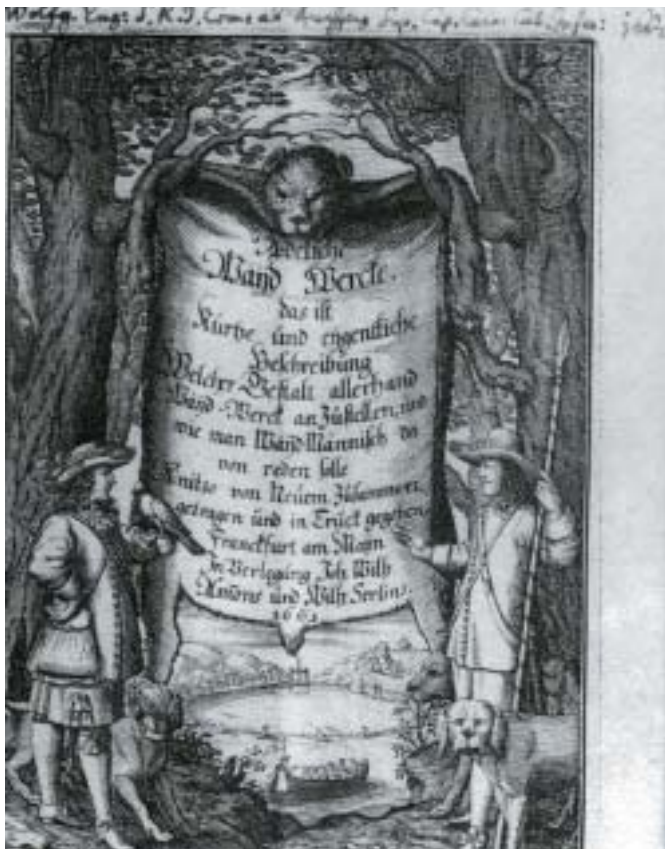 Wolfg. Eng: S. R. I. Comes ab
Adeliche
Waÿd Wercke.
das ist
Kurtze und eygentliche
Beschreibung
Welcher Gestalt allerhand
Wayd-Werck anzustellen, und
wie man Waÿd-Männisch da
von reden solle
von Neuem Zusammen
getragen und in Truck gegeben.
Franckfurt am Mayn
In Verlegung Joh. Wilh
und Wilh. Serlins.
1661